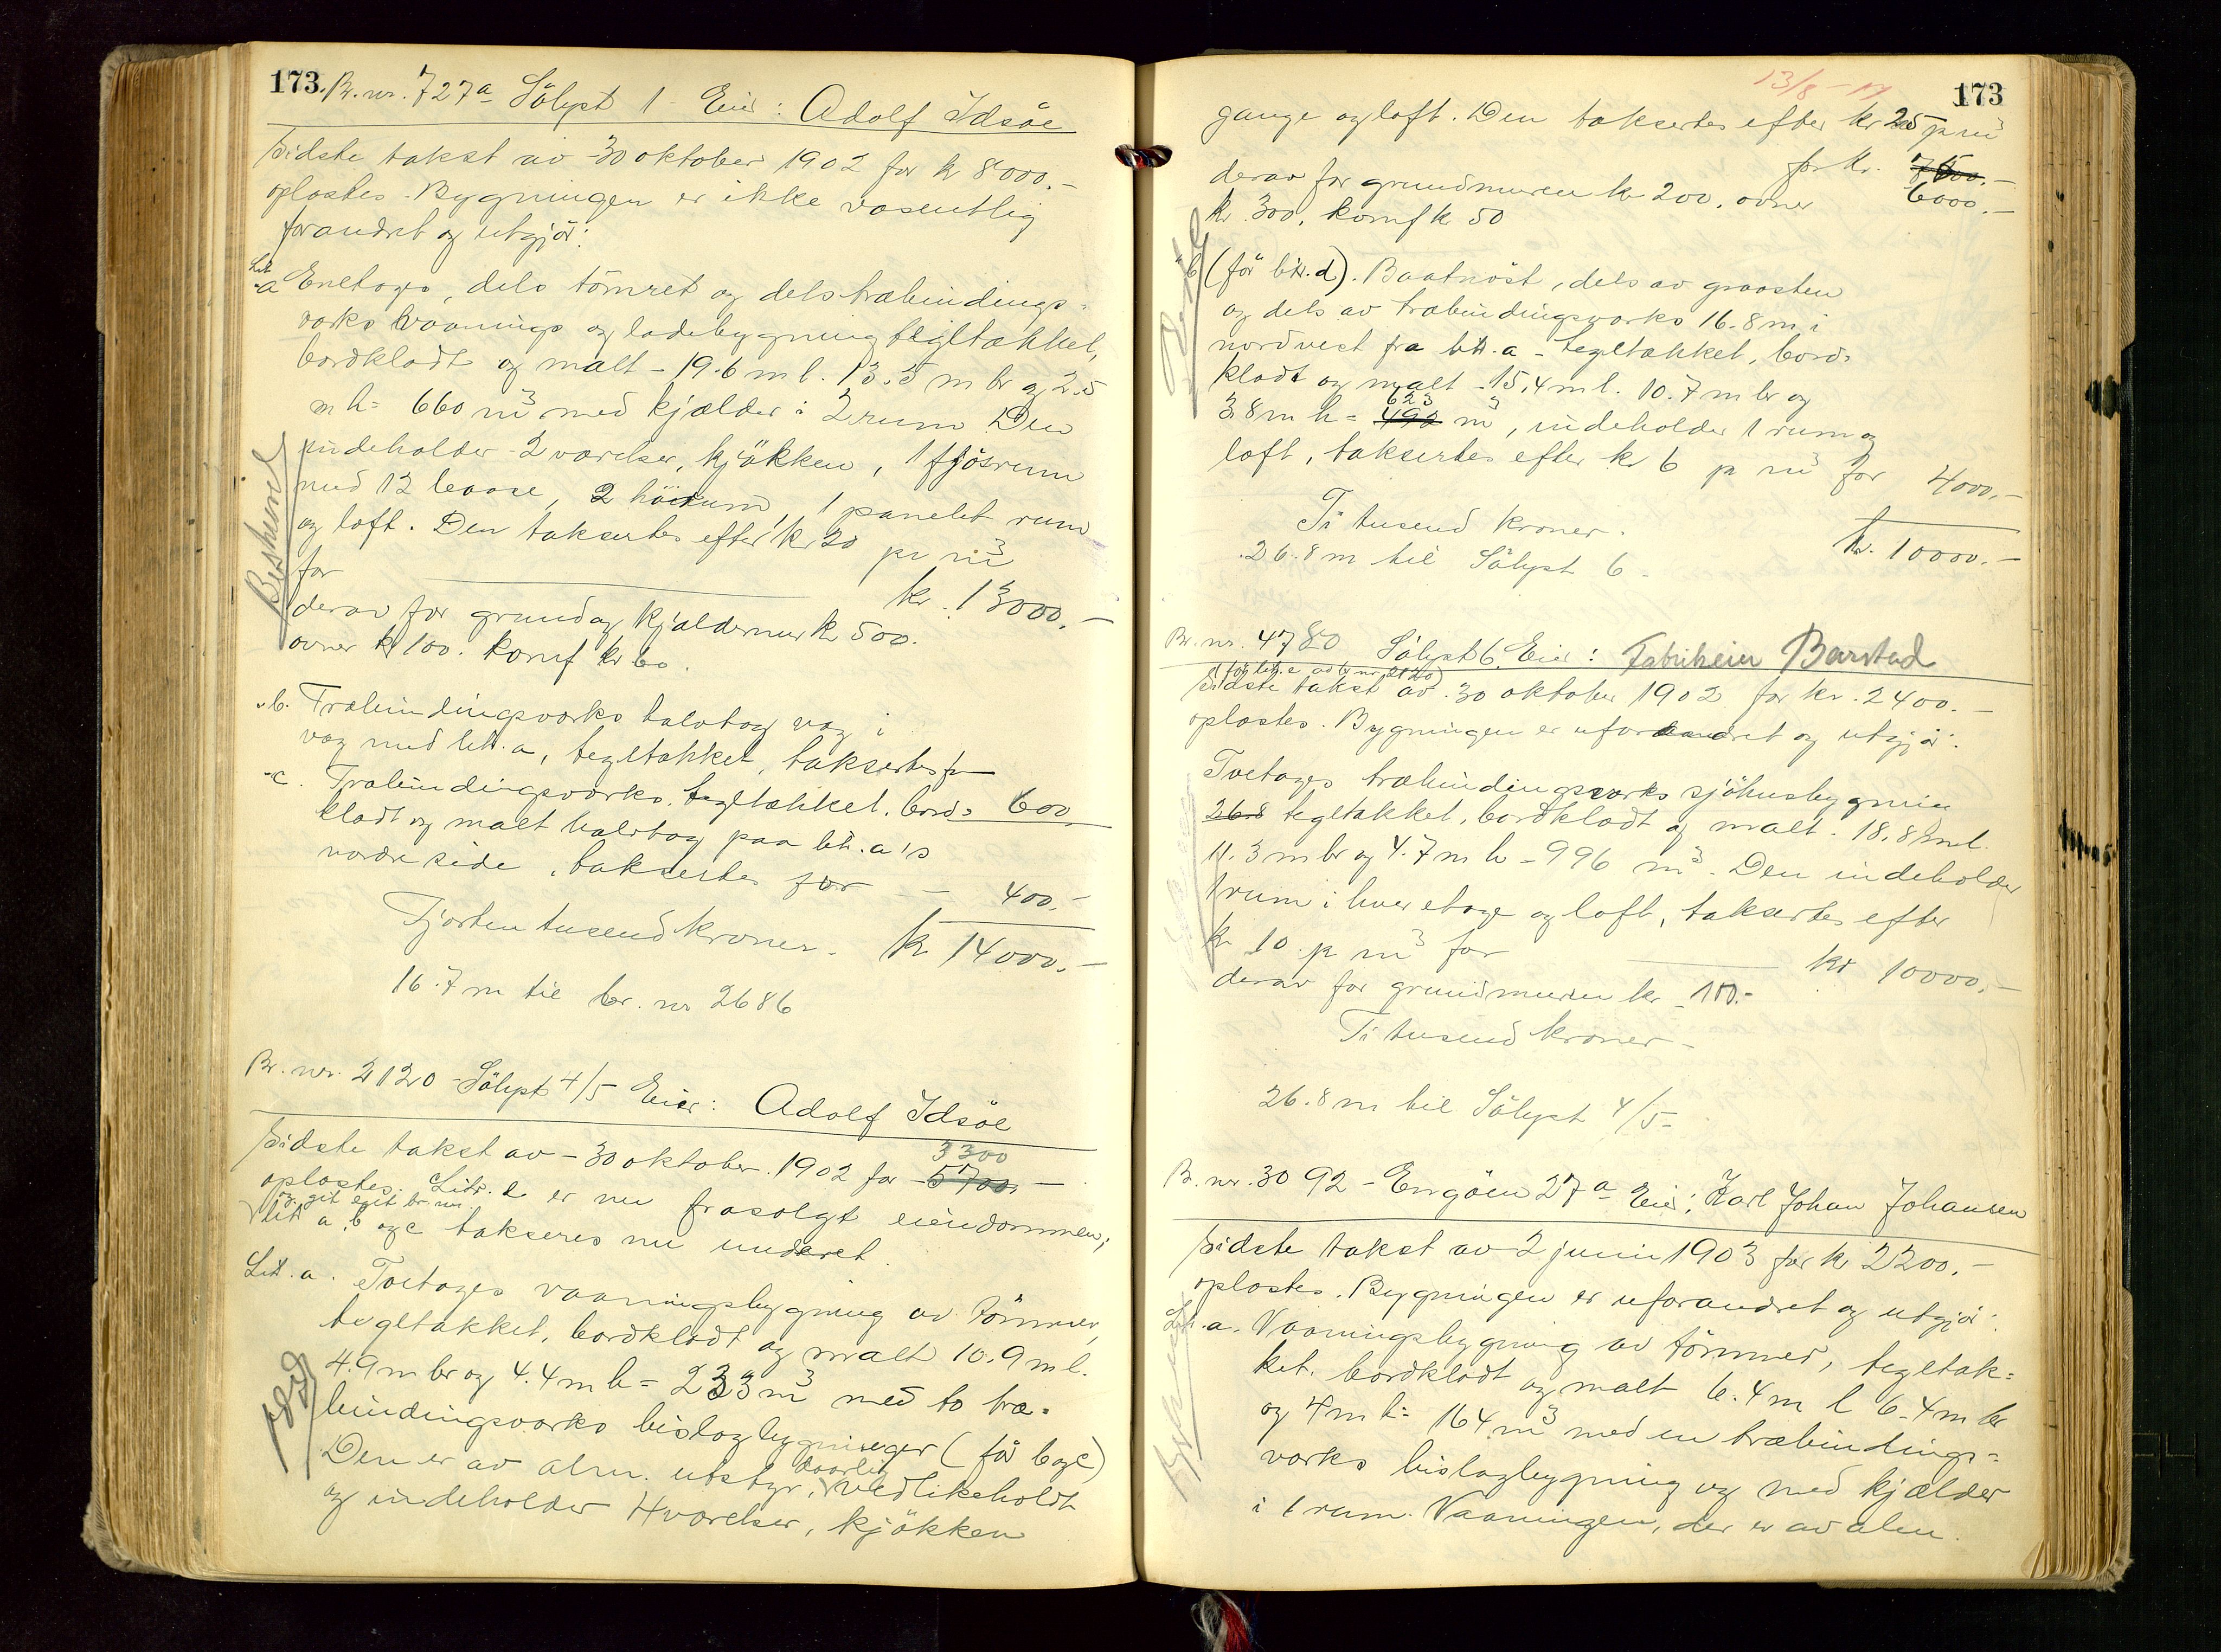 173. Br. nr. 727a Sölyst 1 - Eier: Adolf Idsöe
Sidste takst av 30 oktober 1902 for kr 8000.-
oplæstes. Bygningen er ikke væsentlig
forandret og utgjör:
Lit
"a Enetages, dels tömret og dels træbindings-
værks vaanings og ladebygning tegltækket,
bordklædt og malt - 19.6 m l. 13.5 m br og 2.5
m h = 660 m³ med kjælder i 2 rum. Den
indeholder 2 værelser, kjökken, 1 fjösrum
med 12 baase, 2 höirum, 1 panelet rum
og loft. Den taksertes efter kr 20 pr m³
for kr. 13000.-
derav for grund og kjældermur kr 500.
ovner kr 100. komf kr 60.
Beskaaret
"b. Træbindingsværks halvtag væg i
væg med litr. a, tegltækket, taksertes for
600
"c. Træbindingsværks, tegltækket, bord-
klædt og malt halvtag paa litr. a's
nordre side, taksertes for - 400.-
Fjorten tusend kroner. kr 14000.-
16.7 m til br. nr 2686
Br. nr. 2120 - Sölyst 4/5 Eier: Adolf Idsöe
Sidste takst av - 30 oktober 1902 for 5700.-
3300
oplæstes. Litr. d er nu frasolgt eiendommen,
og git eget br nr
litr a, b og c takseres nu underet.
Litr. a. Toetages vaaningsbygning av tömmer,
tegltækket, bordklædt og malt 10.9 m l.
4.9 m br og 4.4 m h = 233 m³ med to træ-
bindingsværks bislagbygninger (för b og c)
Den er av alm. utstyr, daarlig vedlikeholdt
og indeholder 4 værelser, kjökken
13/8 - 17
173
gange og loft. Den taksertes efter kr 25 p m³
for kr. 7500.-
6000.-
derav for grundmuren kr 200, ovner
kr. 300, komf kr 50
(för litr. d). Baatnöst, dels av graasten
og dels av træbindingsværks 16.8 m i
nordvest fra litr. a - tegltækket, bord-
klædt og malt - 15.4 m l. 10.7 m br og
3.8 m h = 490 m³, indeholder 1 rum og
623
loft, taksertes efter kr 6 p m³ for 4000.-
Ti tusend kroner. kr. 10000.-
26.8 m til Sölyst 6.
Br. nr. 4780 Sölyst 6. Eier: Fabrikeier Barstad
(för litr. d av br nr 2120)
Sidste takst av 30 oktober 1902 for kr. 2400.-
oplæstes. Bygningen er uforandret og utgjör:
Toetages træbindingsværks sjöhusbygning
26.8 tegltækket, bordklædt og malt - 18.8 m l.
11.3 m br og 4.7 m h - 996 m³. Den indeholder
1 rum i hver etage og loft, taksertes efter
kr 10 p m³ for kr 10000.-
derav for grundmuren kr 100.-
Ti tusend kroner -
26.8 m til Sölyst 4/5 -
Br. nr. 3092 - Engöen 27a Eier: Karl Johan Johansen
Sidste takst av 2 juni 1903 for kr 2200.-
oplæstes. Bygningen er uforandret og utgjör:
Litr. a. Vaaningsbygning av tömmer, tegltæk-
ket, bordklædt og malt 6.4 m l 6.4 m br
og 4 m h = 164 m³ med en træbindings-
værks bislagbygning og med kjælder
i 1 rum. Vaaningen, der er av alm.